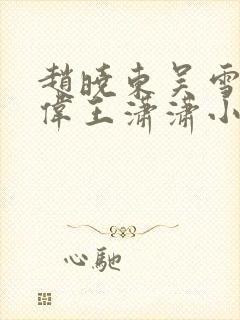 趙曉東吳雪
偉王瀟瀟小
心馳